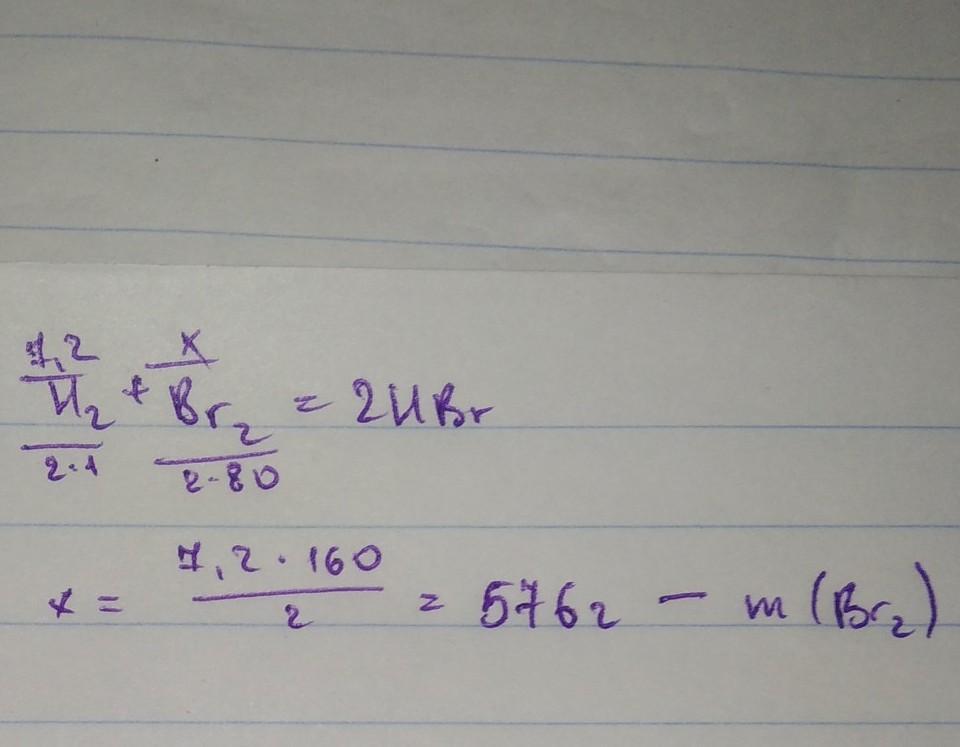 7,2 x
H₂ + Br₂ = 2HBr
2·1 2·80
x = 7,2 · 160 / 2 = 576г — m (Br₂)